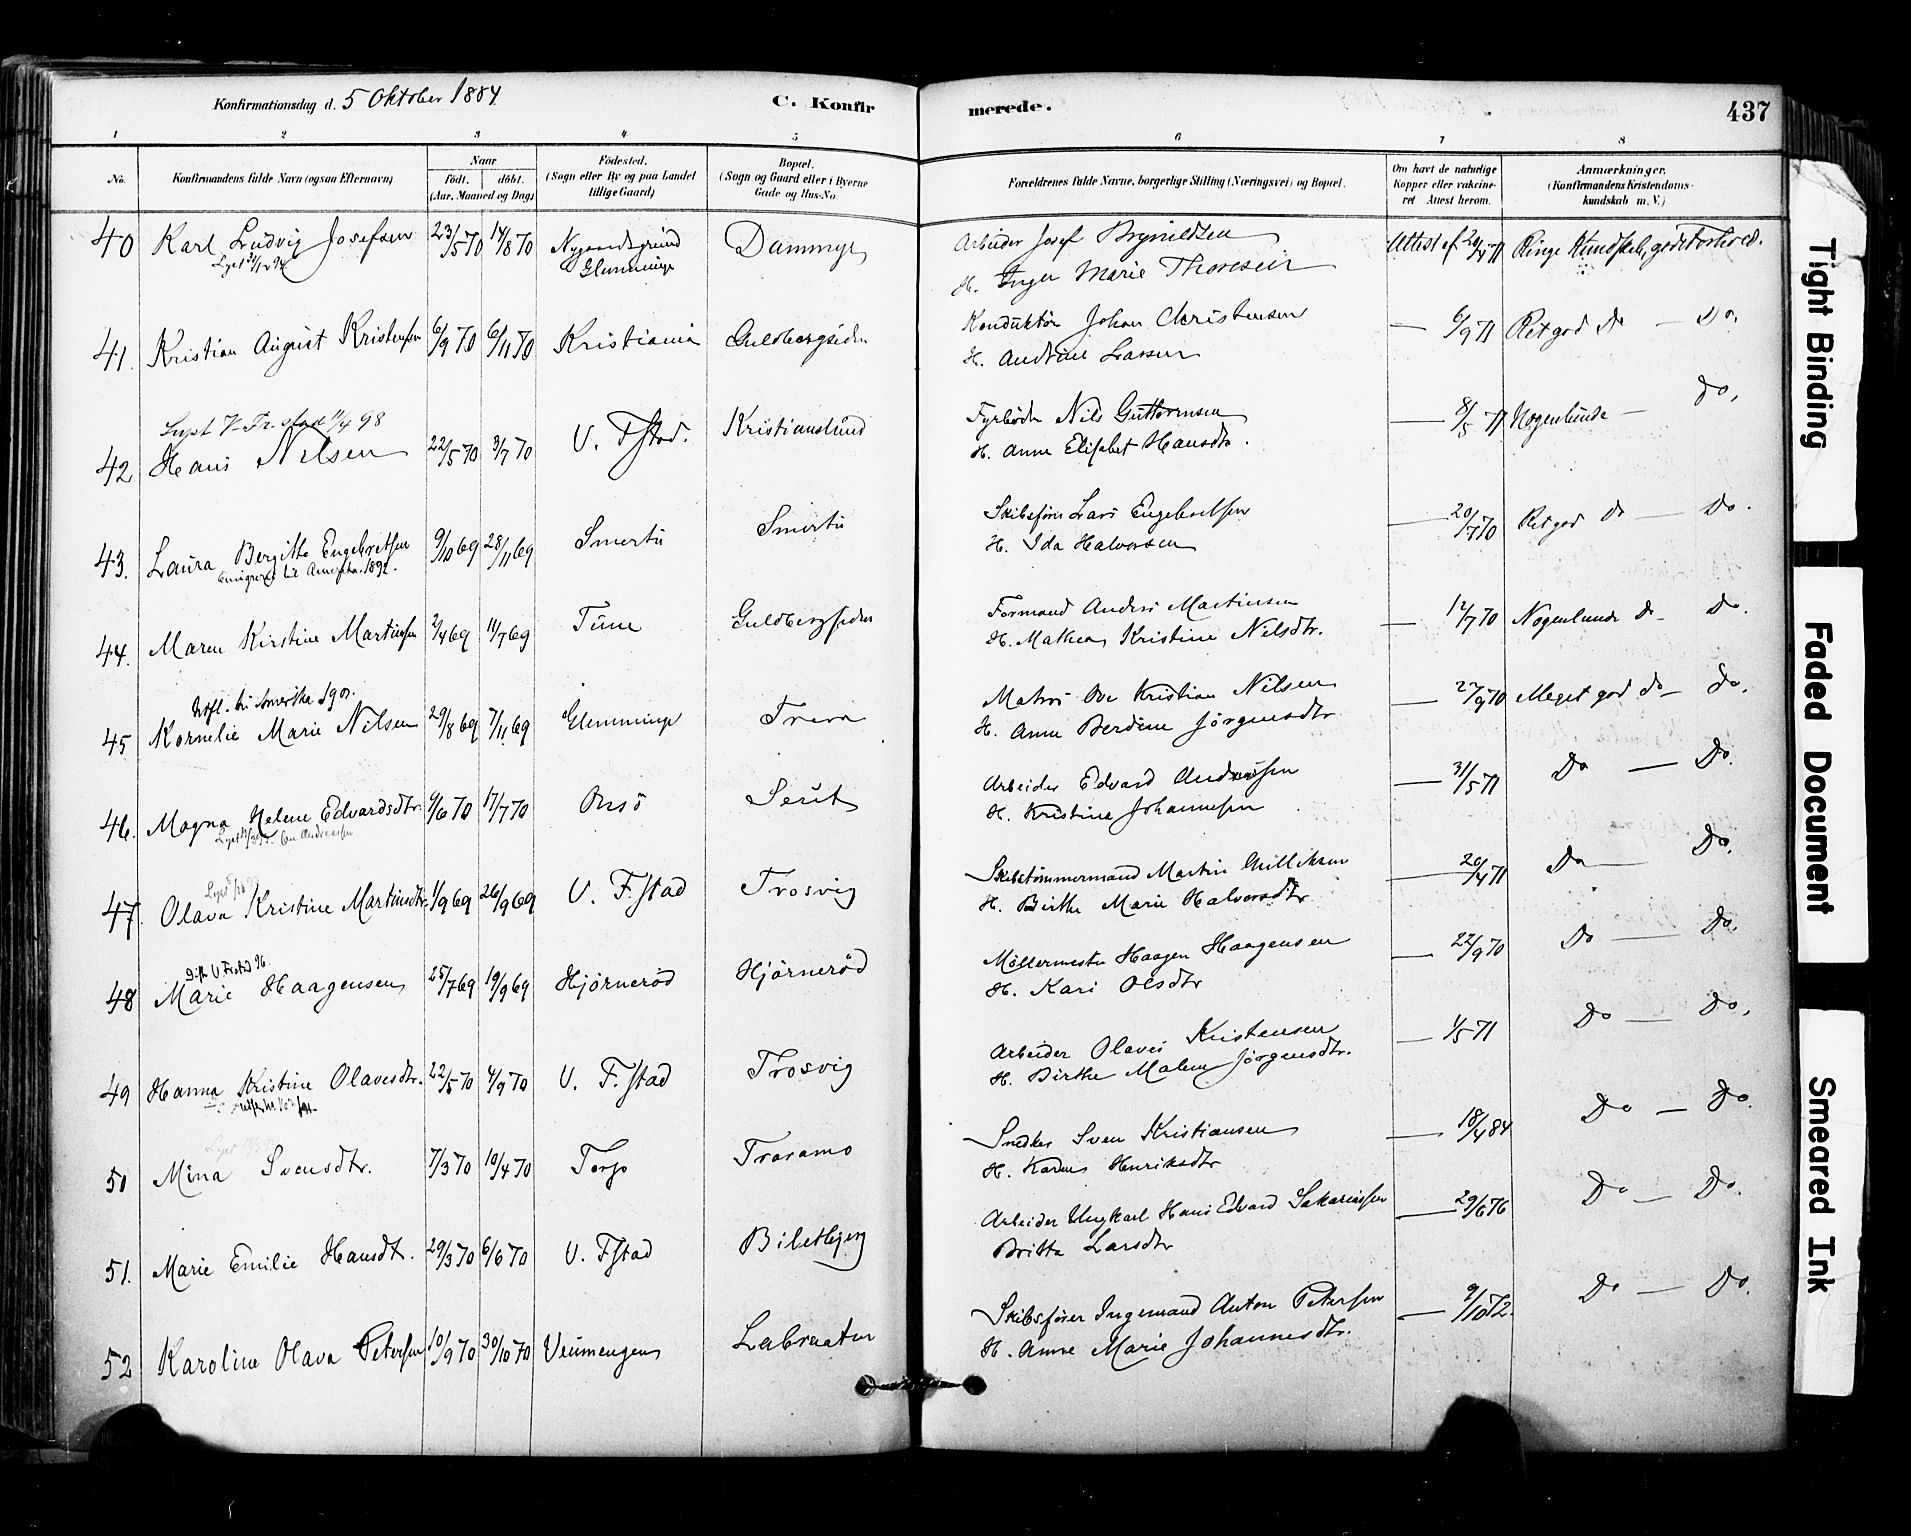 Konfirmationsdag d. 5 Oktober 1884 C. Konfir merede. 437
1 2 3 4 5 6 7 8
No. Konfirmandens fulde Navn (ogsaa Efternavn) Naar Födt. döbt. (Aar, Maaned og Dag) Födested. (Sogn eller By og paa Landet tillige Gaard) Bopæl. (Sogn og Gaard eller i Byerne Gade og Hus-No. Forældrenes fulde Navne, borgerlige Stilling (Næringsvei) og Bopæl. Om havt de naturlige Kopper eller vakcineret Attest herom. Anmærkninger. (Konfirmandens Kristendomskundskab m. V.)
40 Karl Ludvig Josefsen 23/5 70 14/8 70 Nygaardsgrund Glemminge Dammyr Arbeider Josef Brynildsen Attest af 20/4 71 Ringe Kundskab, gode Forhold.
H. Inger Marie Thoresen
41. Kristian August Kristensen 6/9 70 6/11 70 Kristiania Guldbergsiden Konduktør Johan Christensen — 6/9 71 Retgod Do — Do.
H. Andrine Larsen
V. Fr.stad 11/4 98
42 Hans Nilsen 22/5 70 3/7 70 V. Fstad. Kristianslund Fyrbøder Nils Guttormsen — 8/5 71 Nogenlunde — Do,
H. Anne Elisabet Hansdtr.
43. Laura Bergitte Engebretsen 9/10 69 28/11 69 Smertu Smertu Skibsfører Lars Engebretsen — 20/7 70 Retgod Do — Do.
Emigreret til Amerika 1892. H. Ida Halvorsen
44. Maren Kirstine Martinsen 2/4 69 11/7 69 Tune Guldbergsiden Formand Anders Martinsen — 12/7 70 Nogenlunde Do — Do.
H. Mathea Kristine Nilsdtr.
Utfl. til Amerika
45 Kornelie Marie Nilsen 29/8 69 7/11 69 Glemminge Trara Matros Ole Kristian Nilsen — 27/9 70 Meget god Do — Do.
H. Anne Berdine Jörgensdtr
46. Magna Helene Edvardsdtr. 9/6 70 17/7 70 Onsö Seut Arbeider Edvard Andreassen — 31/5 71 Do — Do.
H. Kristine Johannesen
47. Olava Kristine Martinsdtr. 1/9 69 26/9 69 V. F.stad Trosvig Skibstömmermand Martin Gulliksen — 20/4 71 Do — Do.
H. Birthe Marie Halvorsdtr
48 Marie Haagensen 25/7 69 19/9 69 Hjørnerød Hjørnerød Møllermester Haagen Haagensen — 22/9 70 Do — Do.
H. Kari Olsdtr
49 Hanna Kristine Olavesdtr. 22/5 70 4/9 70 V. F.stad Trosvig Arbeider Olaves Kristensen — 1/5 71 Do — Do,
H. Birthe Malene Jörgensdtr.
50 Mina Svensdtr. 7/3 70 10/4 70 Torp Traramo Snedker Sven Kristiansen — 18/4 84 Do — Do.
H. Karen Henriksdtr
51. Marie Emilie Hansdtr. 29/3 70 6/6 70 V. Fstad Biletbjerg Arbeider Ungkarl Hans Edvard Sakariassen — 29/6 76 Do — Do.
Britta Larsdtr
52 Karoline Olava Petersen 10/9 70 30/10 70 Veumengen Labraaten Skibsfører Ingemand Anton Petersen — 9/10 72. Do — Do.
H. Anne Marie Johannesdtr.
Tight Binding
Faded Document
Smeared Ink